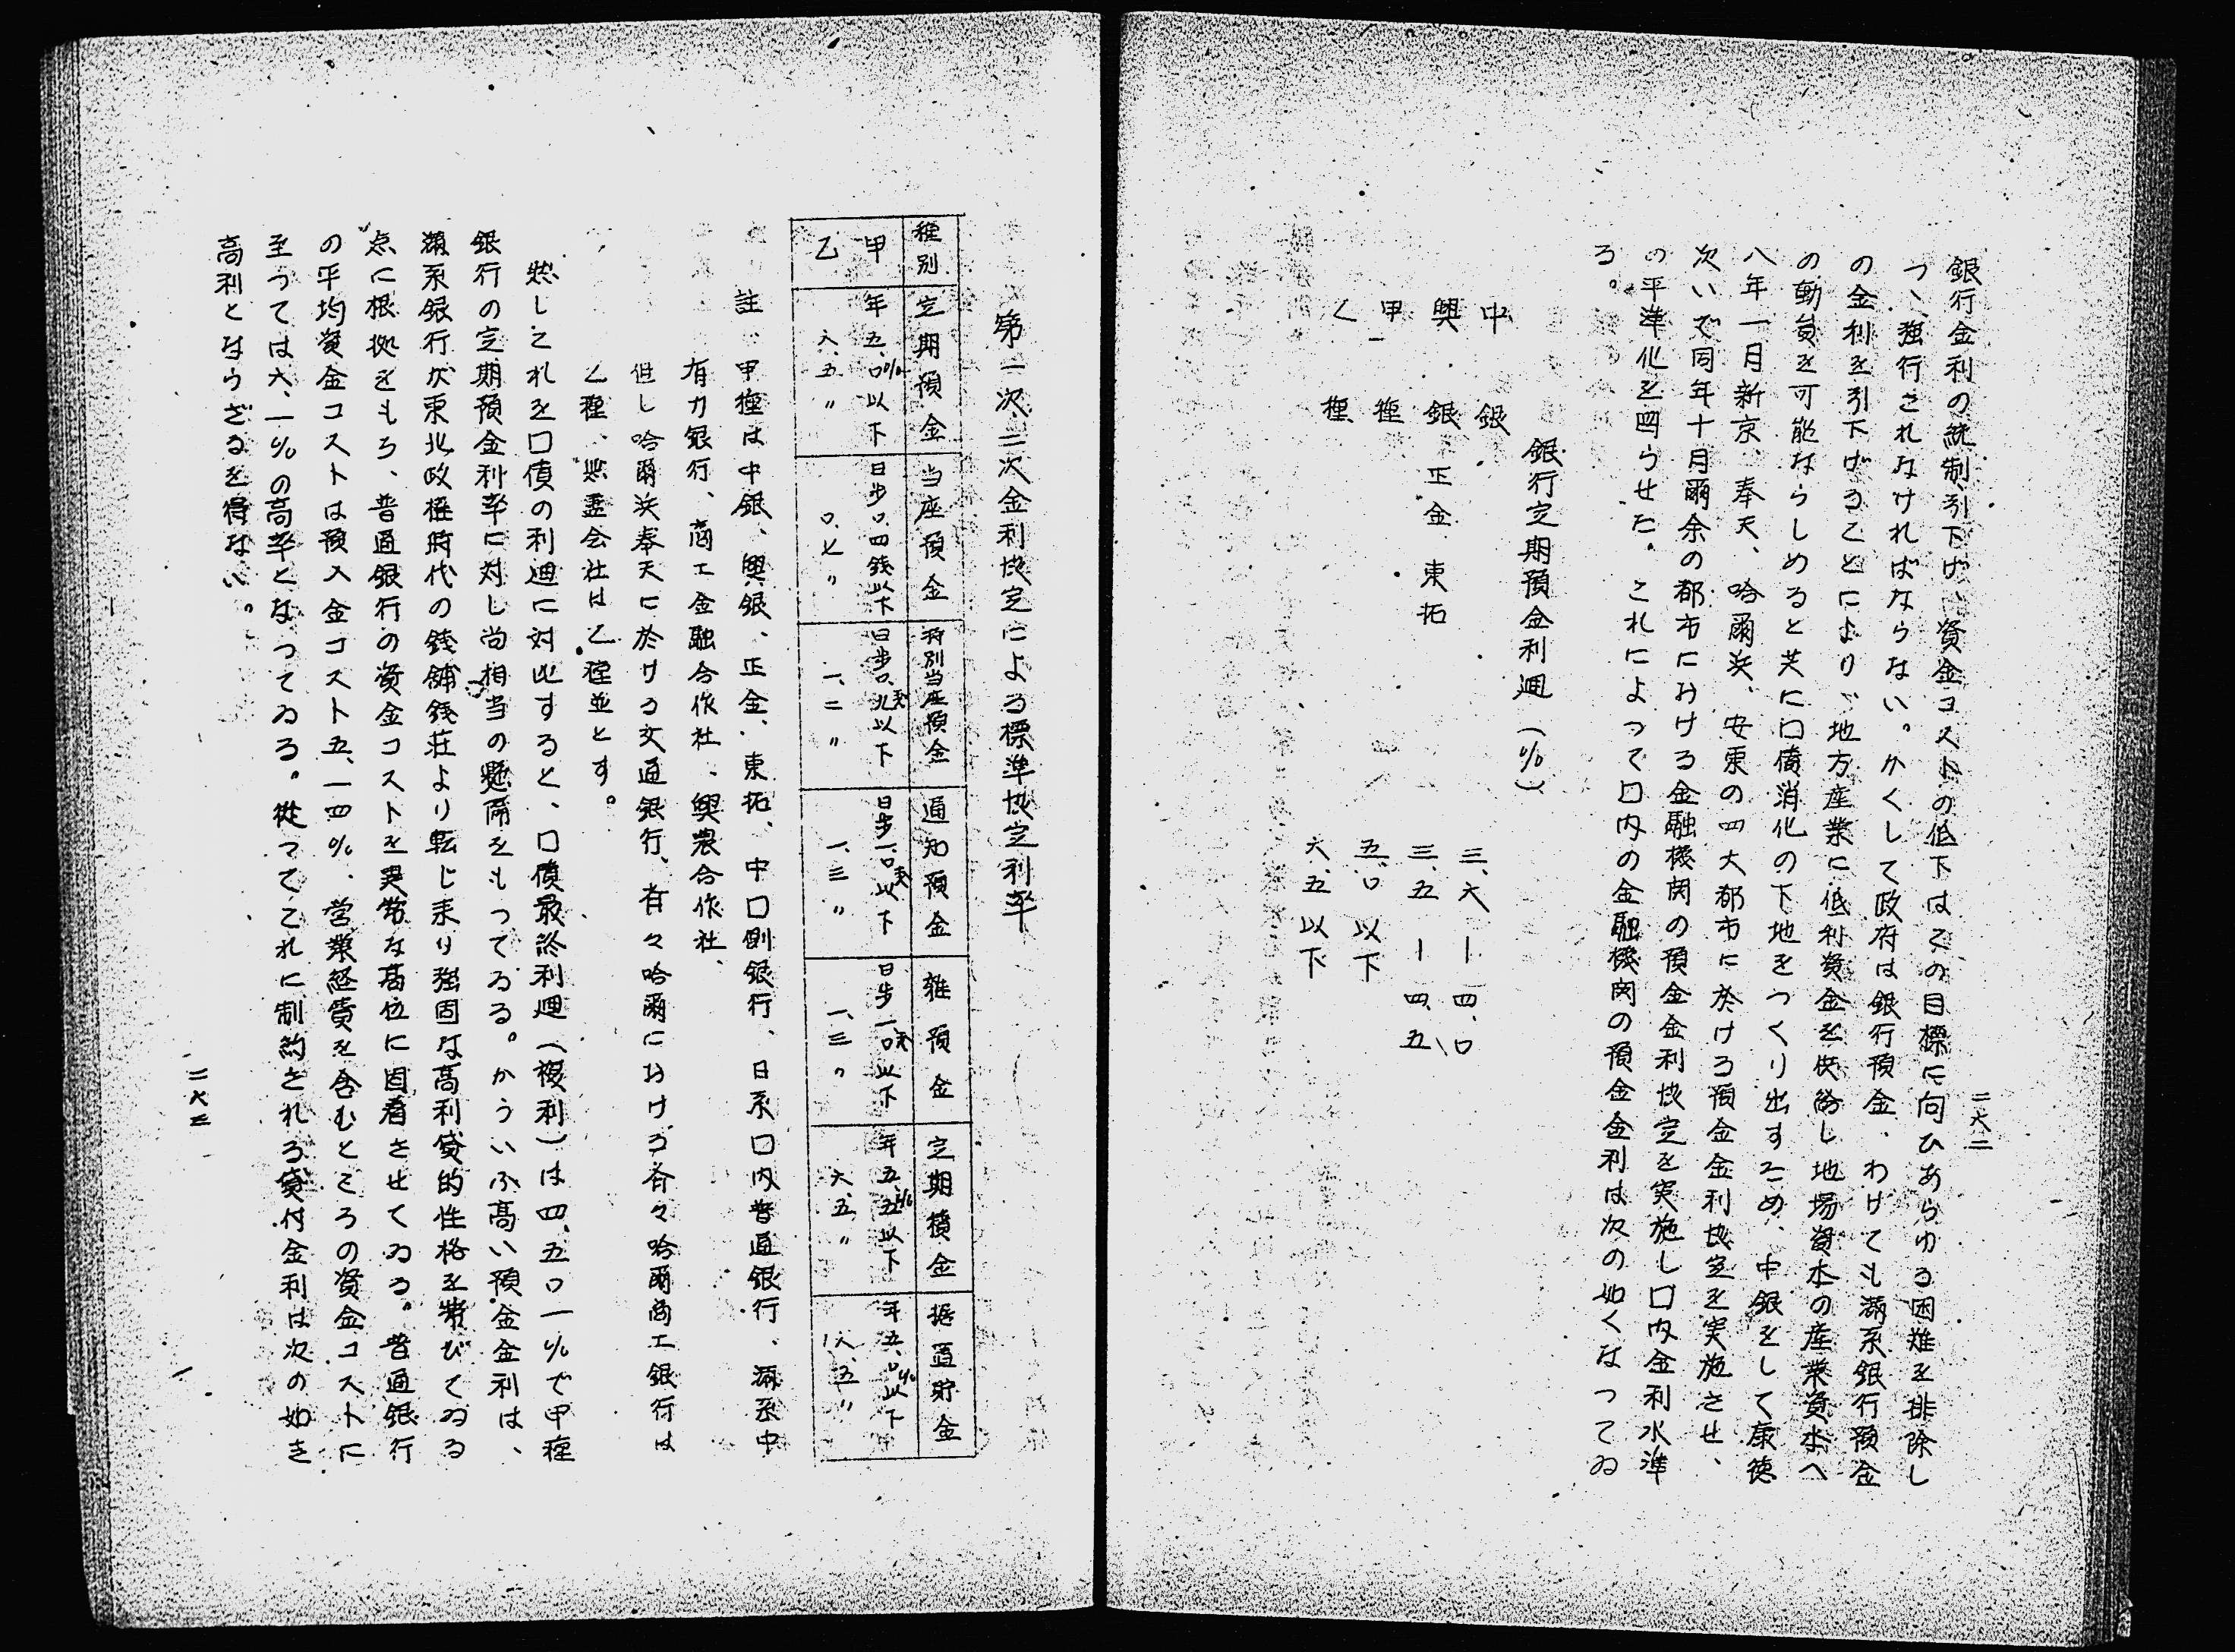 二六二
銀行金利の統制引下げ、資金コストの低下はこの目標に向ひあらゆる困難を排除し
つゝ強行されなければならない。かくして政府は銀行預金、わけても満系銀行預金
の金利を引下げることにより、地方産業に低利資金を供給し地場資本の産業資本へ
の動員を可能ならしめると共に口債消化の下地をつくり出すため、中銀をして康徳
八年一月新京、奉天、哈爾浜、安東の四大都市に於ける預金金利協定を実施させ、
次いで同年十月爾余の都市における金融機関の預金金利協定を実施し口内金利水準
の平準化を図らせた。これによって口内の金融機関の預金金利は次の如くなってゐ
る。
銀行定期預金利廻（%）
中銀 三、六ー四、口
興銀 正金 東拓 三、五ー四、五
甲種 五、口以下
乙種 六、五以下
第一次、二次金利協定による標準協定利率
種別 定期預金 当座預金 特別当座預金 通知預金 雑預金 定期積金 据置貯金
甲 年五、口%以下 日歩口、四銭以下 日歩口、九銭以下 日歩一、口銭以下 日歩一、口銭以下 年五、五%以下 年五、口%以下
乙 六、五〃 口、七〃 一、二〃 一、三〃 一、三〃 六、五〃 六、五〃
註、甲種は中銀、興銀、正金、東拓、中口側銀行、日系口内普通銀行、満系中
有力銀行、商工金融合作社、興農合作社、
但し哈爾浜奉天に於ける交通銀行、在々哈爾における斉々哈爾商工銀行は
乙種、無盡会社は乙種並とす。
然しこれを口債の利廻に対比すると、口債最終利廻（複利）は四、五口一%で甲種
銀行の定期預金利率に対し尚相当の懸隔をもってゐる。かういふ高い預金金利は、
満系銀行が東北政権時代の銭舗銭荘より転じ来り強固な高利貸的性格を帯びてゐる
点に根拠をもち、普通銀行の資金コストを異常な高位に固着させてゐる。普通銀行
の平均資金コストは預入金コスト五、一四%、営業経費を含むところの資金コストに
至っては六、一%の高率となってゐる。従ってこれに制約される貸付金利は次の如き
高利とならざるを得ない。
二六三